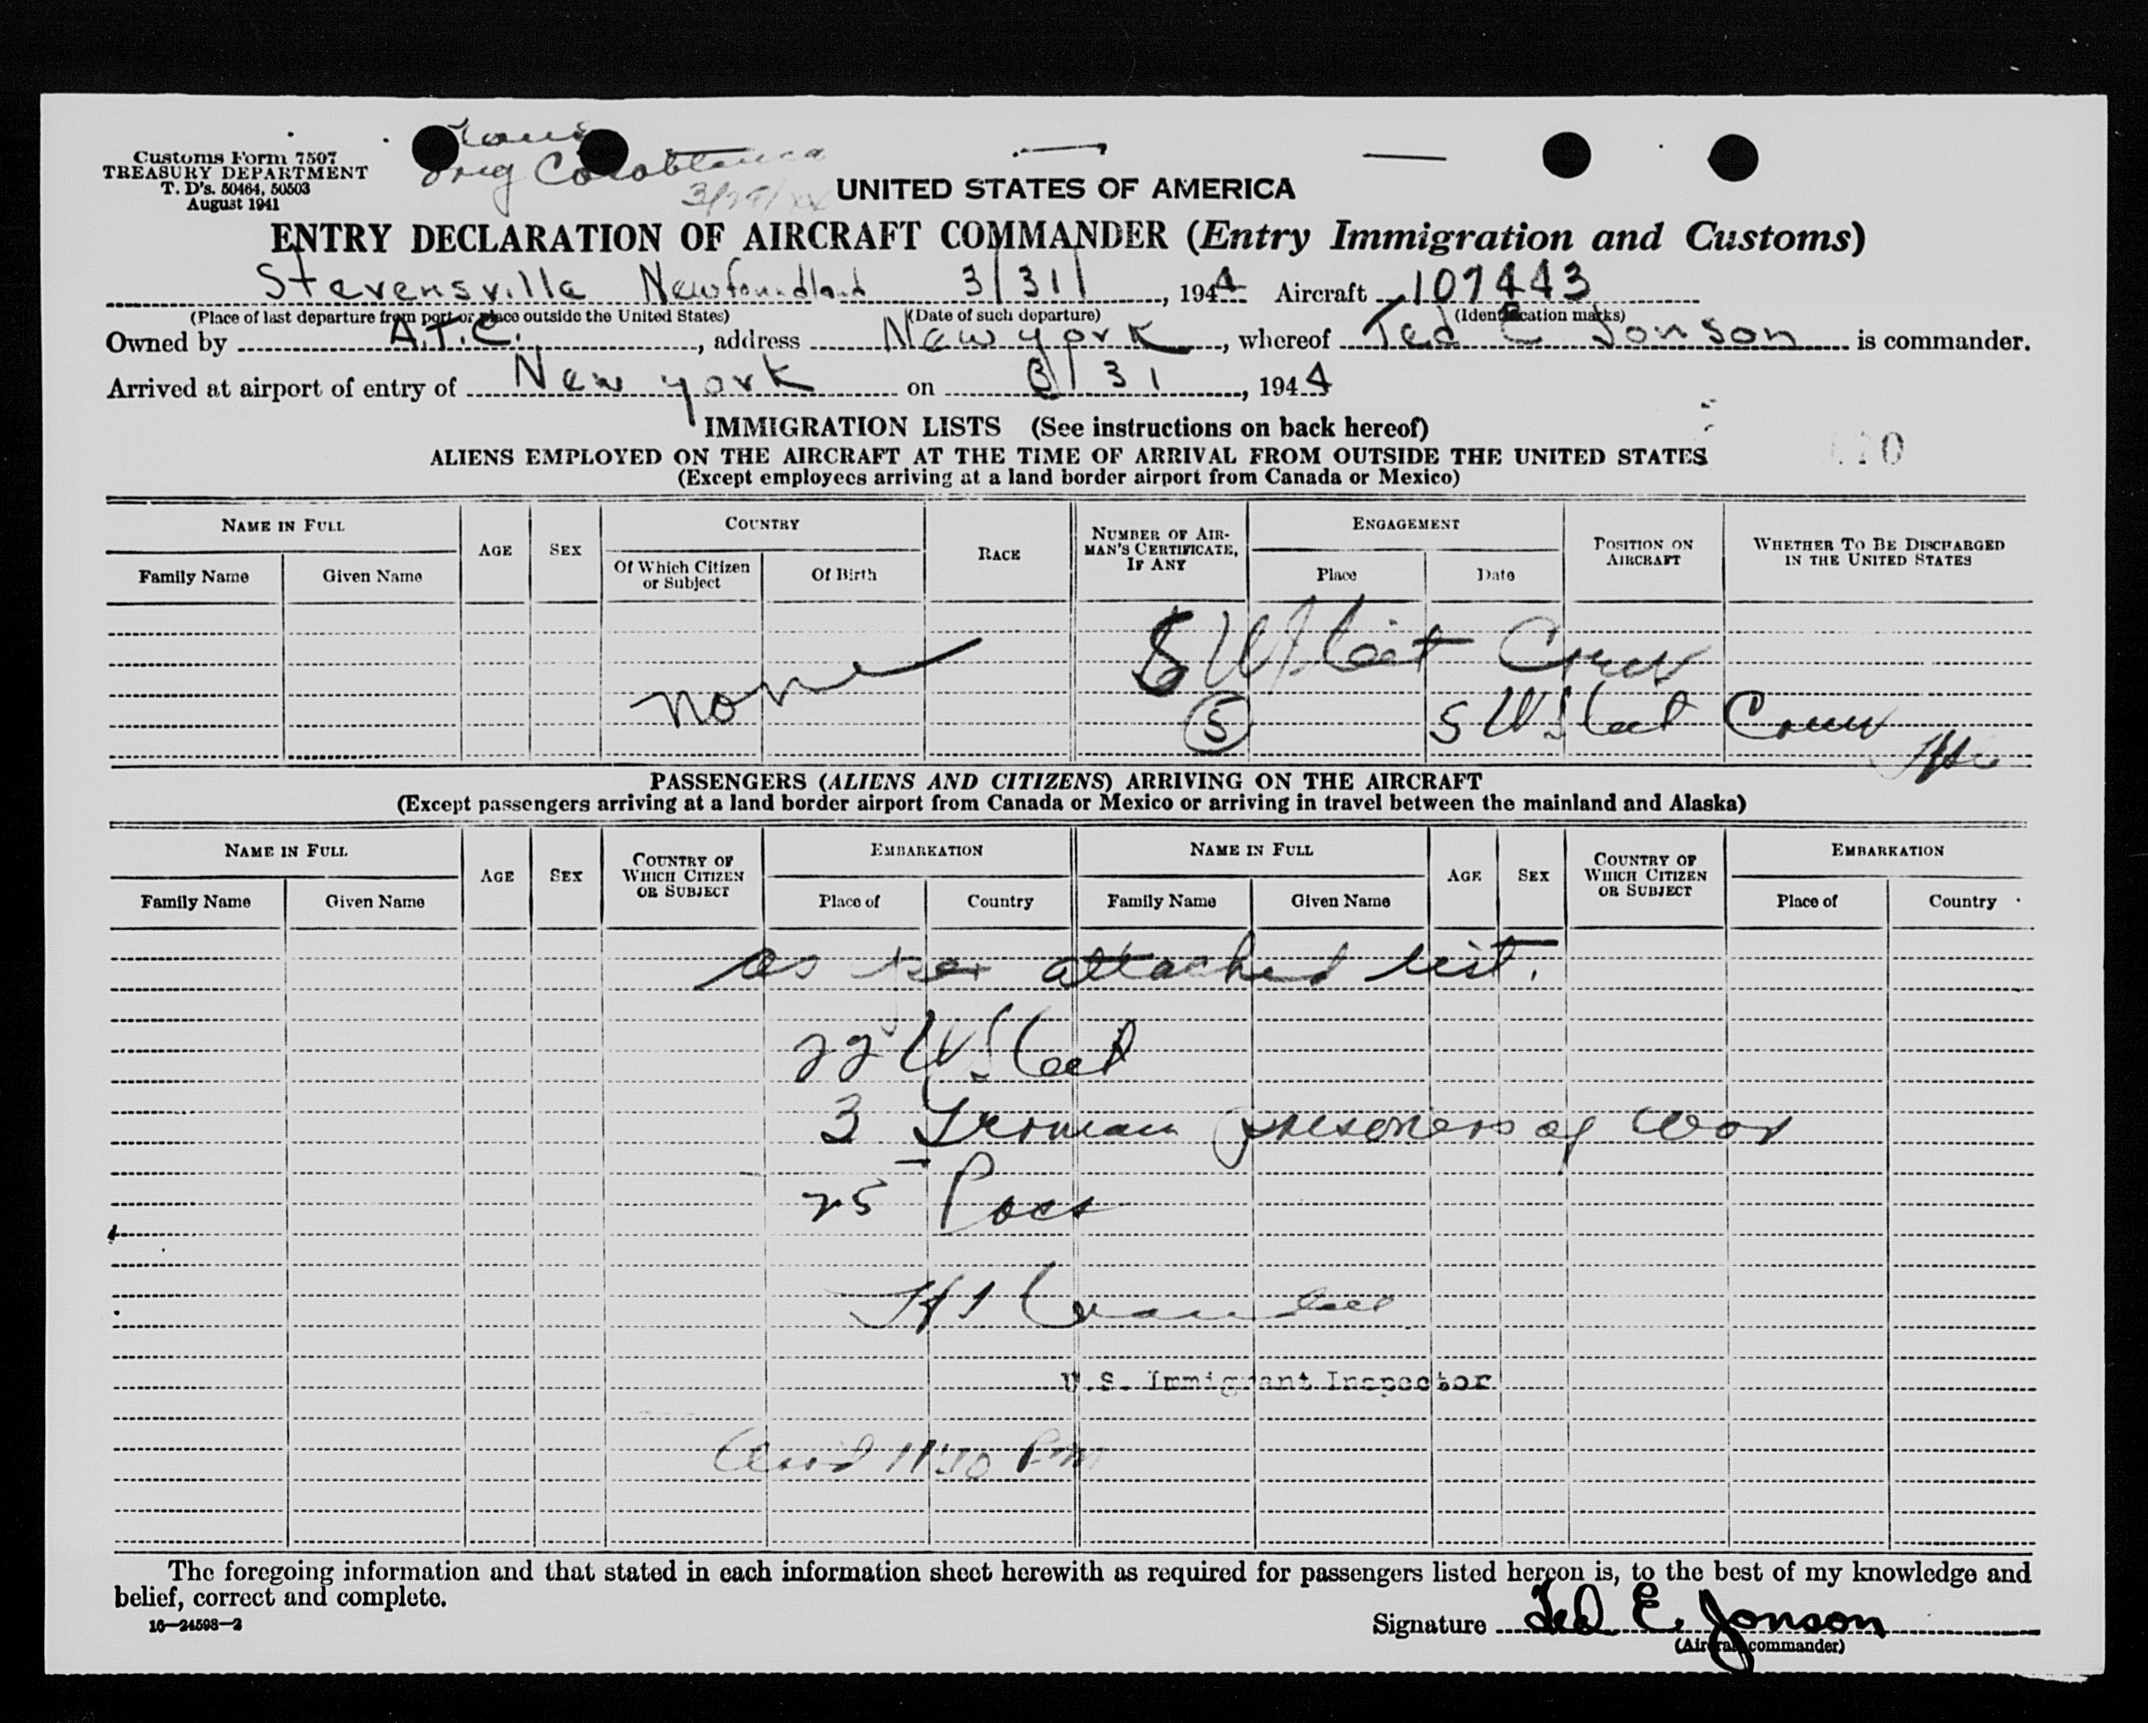 Trans
Orig Casablanca
3/29/44
Customs Form 7507
TREASURY DEPARTMENT
T. D's. 50464, 50503
August 1941
UNITED STATES OF AMERICA
ENTRY DECLARATION OF AIRCRAFT COMMANDER (Entry Immigration and Customs)
Stevensville Newfoundland 3/31/, 1944 Aircraft 107443
(Place of last departure from port or place outside the United States) (Date of such departure) (Identification marks)
Owned by A.T.C., address New york, whereof Ted E Jonson is commander.
Arrived at airport of entry of New york on 3/31, 1944
IMMIGRATION LISTS (See instructions on back hereof)
ALIENS EMPLOYED ON THE AIRCRAFT AT THE TIME OF ARRIVAL FROM OUTSIDE THE UNITED STATES
(Except employees arriving at a land border airport from Canada or Mexico)
NAME IN FULL AGE SEX COUNTRY RACE NUMBER OF AIRMAN'S CERTIFICATE, IF ANY ENGAGEMENT POSITION ON AIRCRAFT WHETHER TO BE DISCHARGED IN THE UNITED STATES
Family Name Given Name Of Which Citizen or Subject Of Birth Place Date
none
Crew
5 5 Crew
PASSENGERS (ALIENS AND CITIZENS) ARRIVING ON THE AIRCRAFT
(Except passengers arriving at a land border airport from Canada or Mexico or arriving in travel between the mainland and Alaska)
NAME IN FULL AGE SEX COUNTRY OF WHICH CITIZEN OR SUBJECT EMBARKATION NAME IN FULL AGE SEX COUNTRY OF WHICH CITIZEN OR SUBJECT EMBARKATION
Family Name Given Name Place of Country Family Name Given Name Place of Country
as per attached list.
22
3 German prisoners of war
25 Pass
U.S. Immigrant Inspector
Arrid 11:30 PM
The foregoing information and that stated in each information sheet herewith as required for passengers listed hereon is, to the best of my knowledge and
belief, correct and complete.
16—24598-2
Signature Ted E. Jonson
(Aircraft commander)